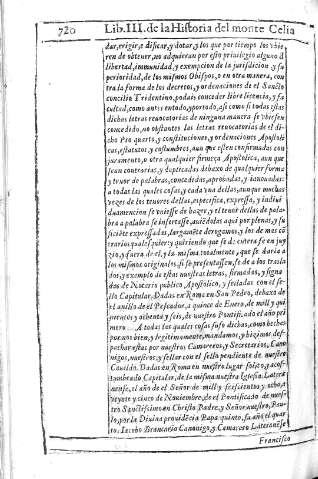 720 Lib. III. de la Historia del monte Celia
dar, erigir, e dificar, y dotar, y los que por tiempo los vbie
ren de obtener, no adquieran por esto priuilegio alguno d
libertad, immunidad, y exempcion de la jurisdicion, y su
perioridad, de los mismos Obispos, o en otra manera, con
tra la forma de los decretos, y ordenaciones de el Sancto
concilio Tridentino, podais conceder libre licencia, y fa
cultad, como antes entodo, y portodo, assi como si todas estas
dichas letras reuocatorias de ninguna manera se vbiesen
concedido, no obstantes las letras reuocatorias del di-
cho Pio quarto, y constituciones, y ordenaciones Apostoli
cas, estatutos, y costumbres, aun que esten confirmadas con
juramento, o otra qualquier firmeça Apostolica, aun que
sean contrarias, y duplicadas debaxo de qualquier forma
y tenor de palabras, concedidas, aprobadas, y innouadas:
a todas las quales cosas, y cada vna dellas, aunque muchas
vezes de los tenores dellas, especifica, expressa, y indiui
duamencion se vuiesse de hazer, y el tenor dellas de pala-
bra a palabra se insertasse, auiēdolas aqui por plenas, y su
ficiēte expressadas, largamēte derogamos, y los de mas cō
trarios qualesquier: y queriendo que se de entera fe en juy
zio, y fuera de el, y la misma totalmente, que se daria a
los mismos originales, si se presentassen, se de a los trasla
dos, y exemplo de estas nuestras letras, firmados, y signa
dos de Notario publico Apostolico, y sellados con el se-
llo Capitular. Dadas en Roma en San Pedro, debaxo de
el anillo de el Pescador, a quince de Enero, de mill y qui
nientos y ochenta y seis, de nuestro Pontificado el año pri
mero .... A todas las quales cosas suso dichas, como hechas
por nos bien, y legitimamente, mandamos, y hizimos des-
pachar estas por nuestros Camareros, y Secretarios, Cano
nigos, nuestros, y sellar con el sello pendiente de nuestro
Cauildo. Dadas en Roma en nuestro lugar solito, y acos-
tumbrado Capitular, de la misma nuestra Iglesia Latera
nense, el año de el Señor de mill y seiscientos y ocho, a
veynte y cinco de Nouiembre, de el Pontificado de nues-
tro Sanctissimo en Christo Padre, y Señor nuestro, Pau-
lo, por la Diuina prouidēcia Papa quinto, su año el quar
to. Iacobo Brancario Canonigo, y Camarero Lateranēse
Francisco